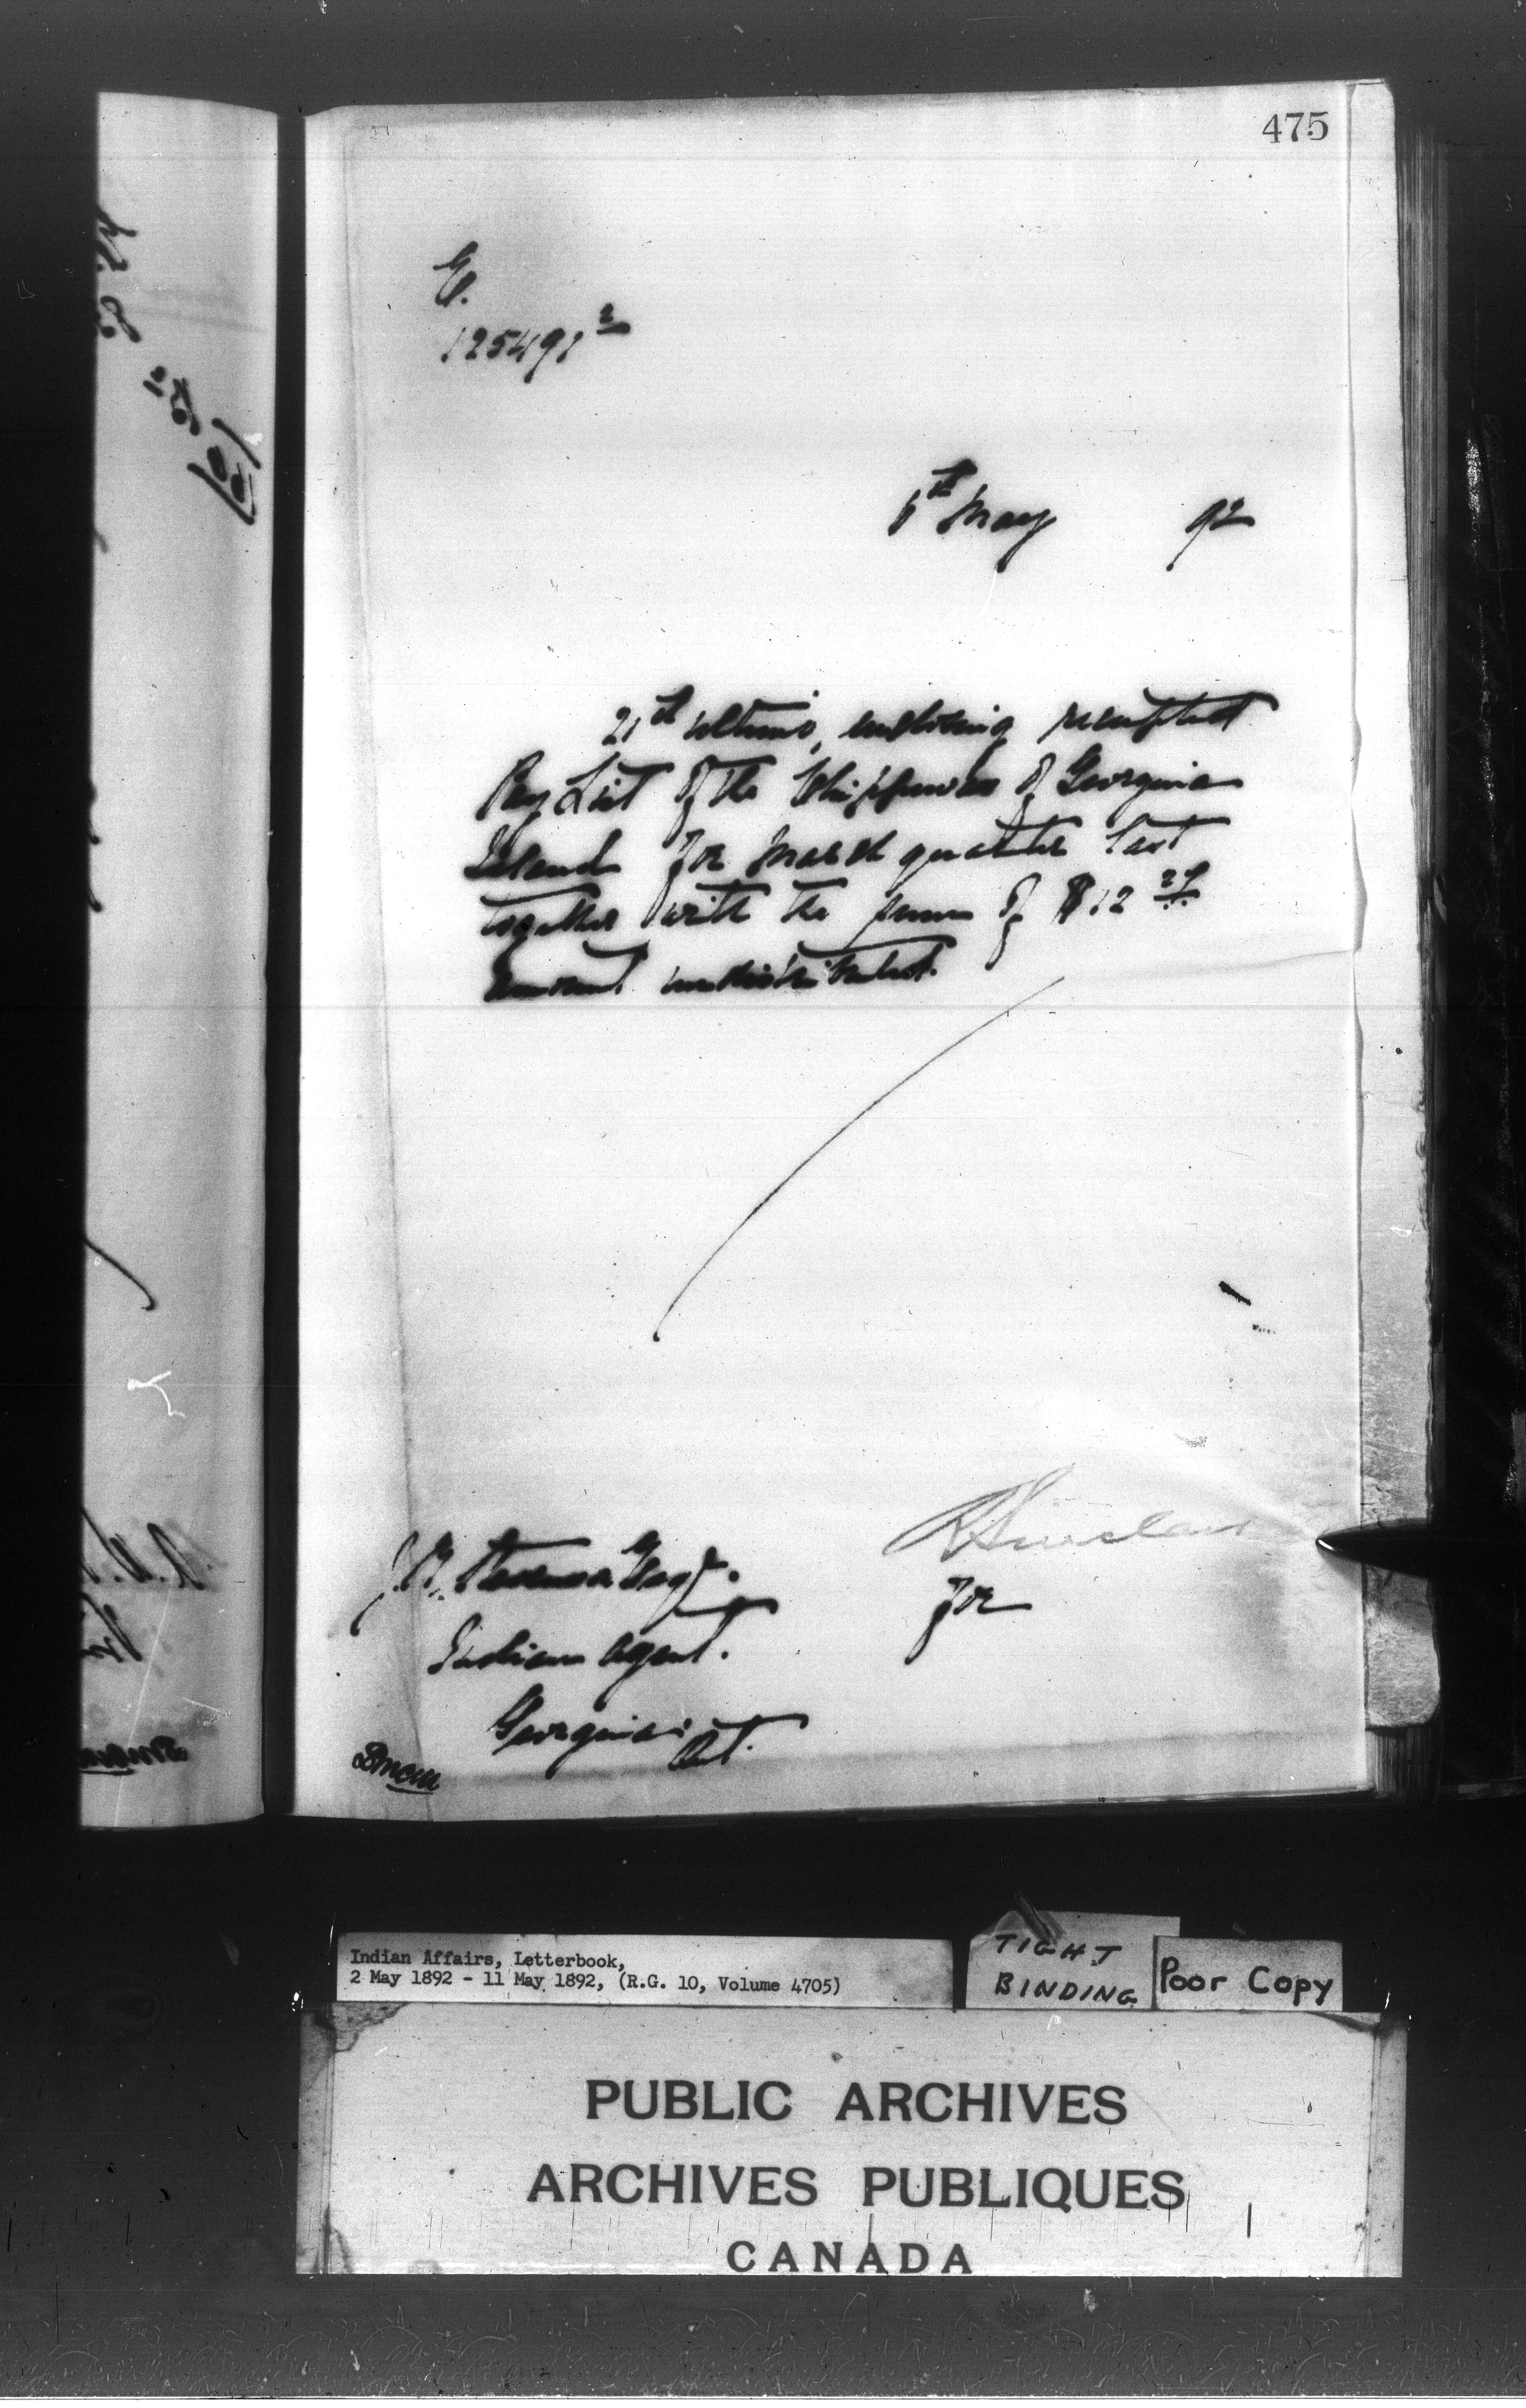 475
E.
125491²
6th May 92
21st ultimo, enclosing receipted
Pay List of the Chippewas of Georgina
Island for March quarter last
together with the sum of $12
amount undistributed.
R Sinclair
for
J.R. Stevenson Esq.
Indian Agent.
Georgina Ont.
Indian Affairs, Letterbook,
2 May 1892 - 11 May 1892, (R.G. 10, Volume 4705)
TIGHT
BINDING
Poor Copy
PUBLIC ARCHIVES
ARCHIVES PUBLIQUES
CANADA